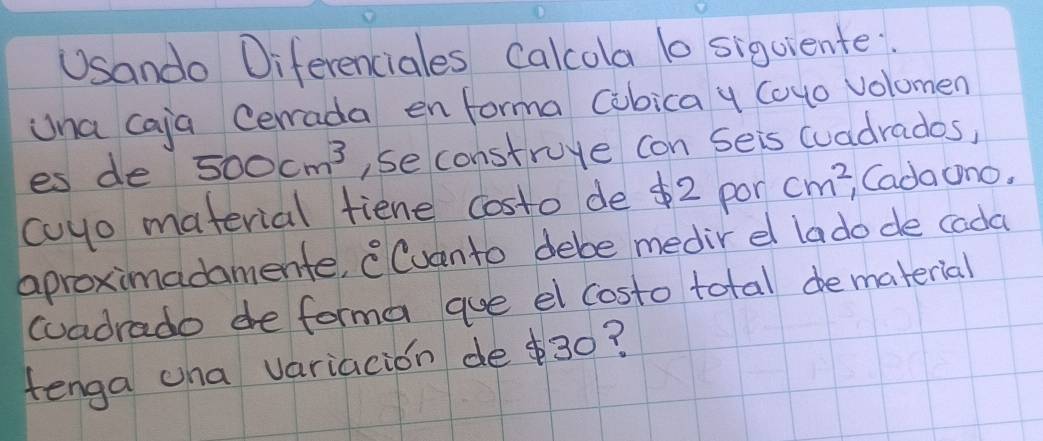 Usando Diferenciales Calcula lo siguiente:.
Una caja Cerrada en forma Cúbica y Cuyo Volumen
es de 500cm³, se construye con Seis Cuadrados,
cuyo material tiene costo de $2 por cm², Cada uno.
aproximadamente. ¿Cuanto debe medir el lado de cada
Cuadrado de forma que el costo total de material
tenga una variación de $30?